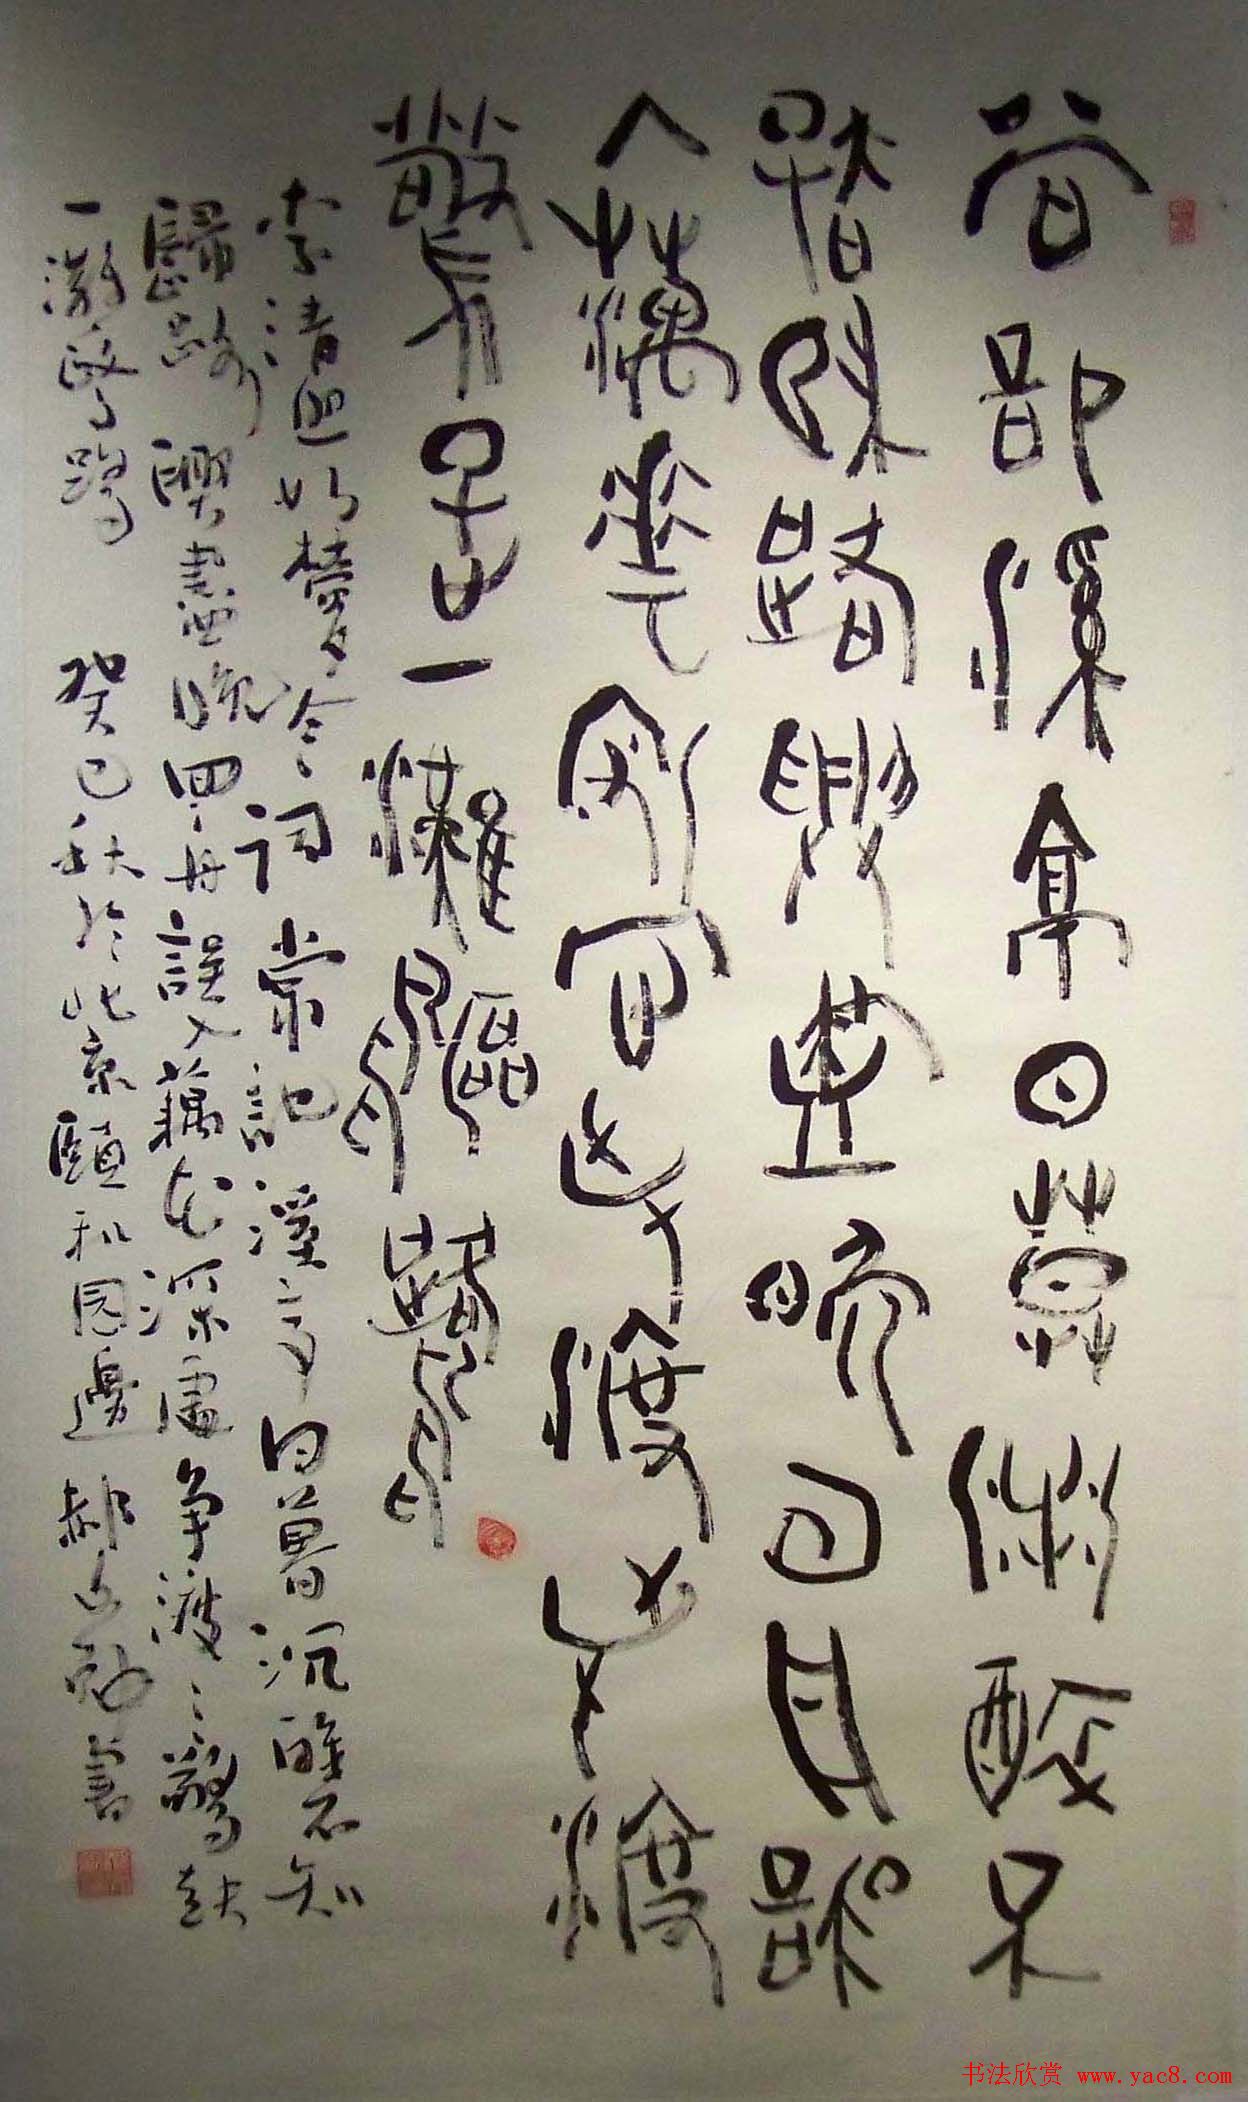 常記溪亭日暮沉醉不
知歸路興盡晚回舟誤
入藕花深處爭渡爭渡
驚起一灘鷗鷺
李清照如夢令詞常記溪亭日暮沉醉不知
歸路興盡晚回舟誤入藕花深處争渡々驚起
一灘鷗鷺 癸巳秋於北京頤和园邊 郝書
书法欣赏 www.yac8.com